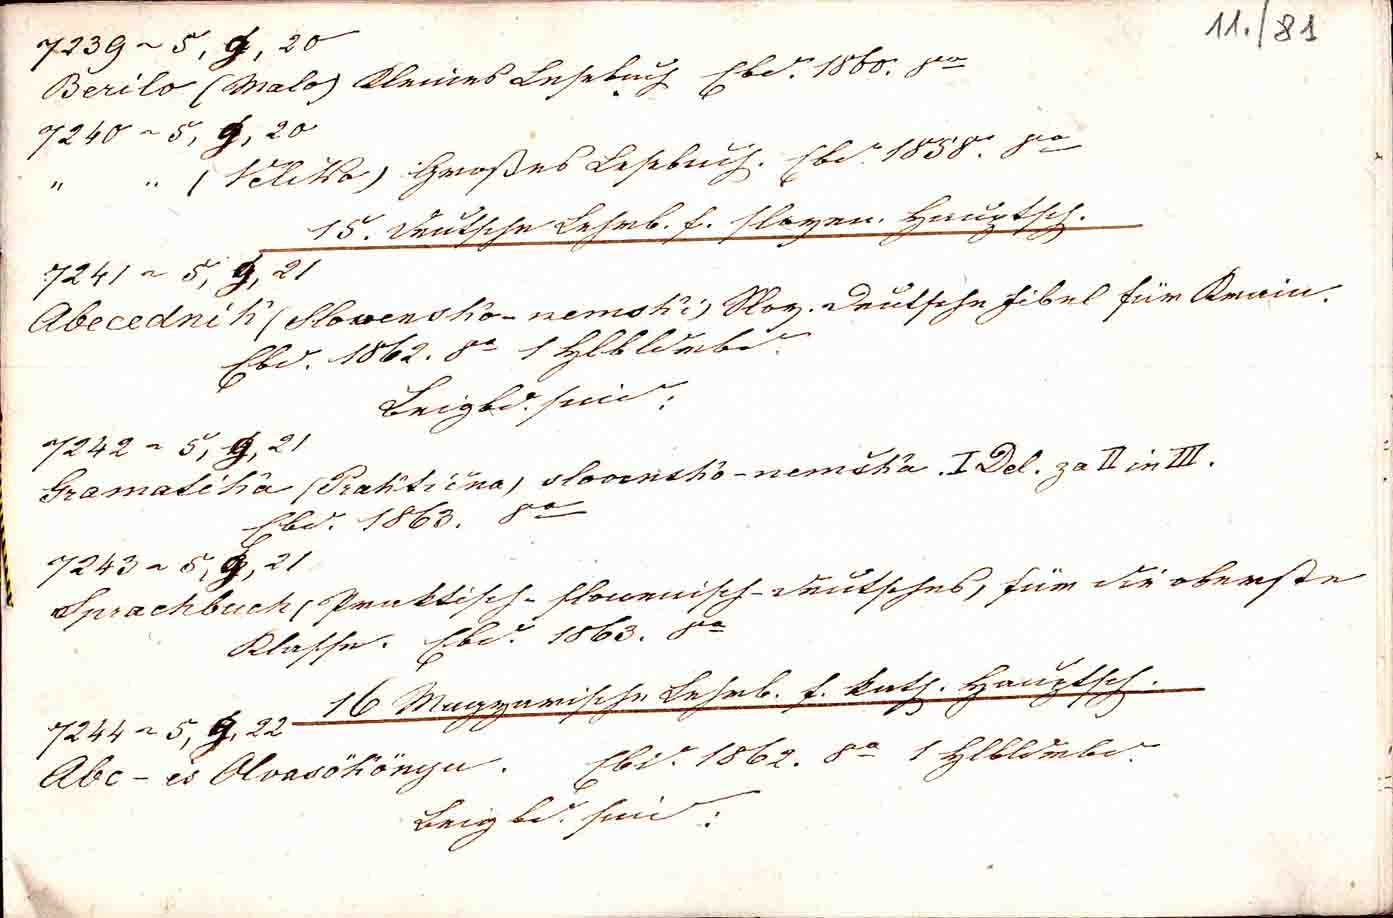 11./81
7239 ~ 5, g, 20
Berilo (Malo) Kleines Lesebuch Ebd. 1860. 8°
7240 ~ 5, g, 20
" " (Veliko) Großes Lesebuch. Ebd. 1858. 8°
15. Deutsche Lehrb. f. sloven. Hauptsch.
7241 ~ 5, g, 21
Abecednik (Slovensko-nemski) Slov. deutsche Fibel für Krain.
Ebd. 1862. 8° 1 Hlbldrbd.
Beigbd. sind:
7242 ~ 5, g, 21
Gramatika (Praktična) slovensko-nemška. I Del. za II in III.
Ebd. 1863. 8°
7243 ~ 5, g, 21
Sprachbuch, Praktisch-slovenisch-deutsches, für die oberste
Klasse. Ebd. 1863. 8°
16 Magyarische Lehrb. f. kath. Hauptsch.
7244 ~ 5, g, 22
Abc - es Olvasókönyv. Ebd. 1862. 8° 1 Hlbldrbd.
Beigbd. sind: